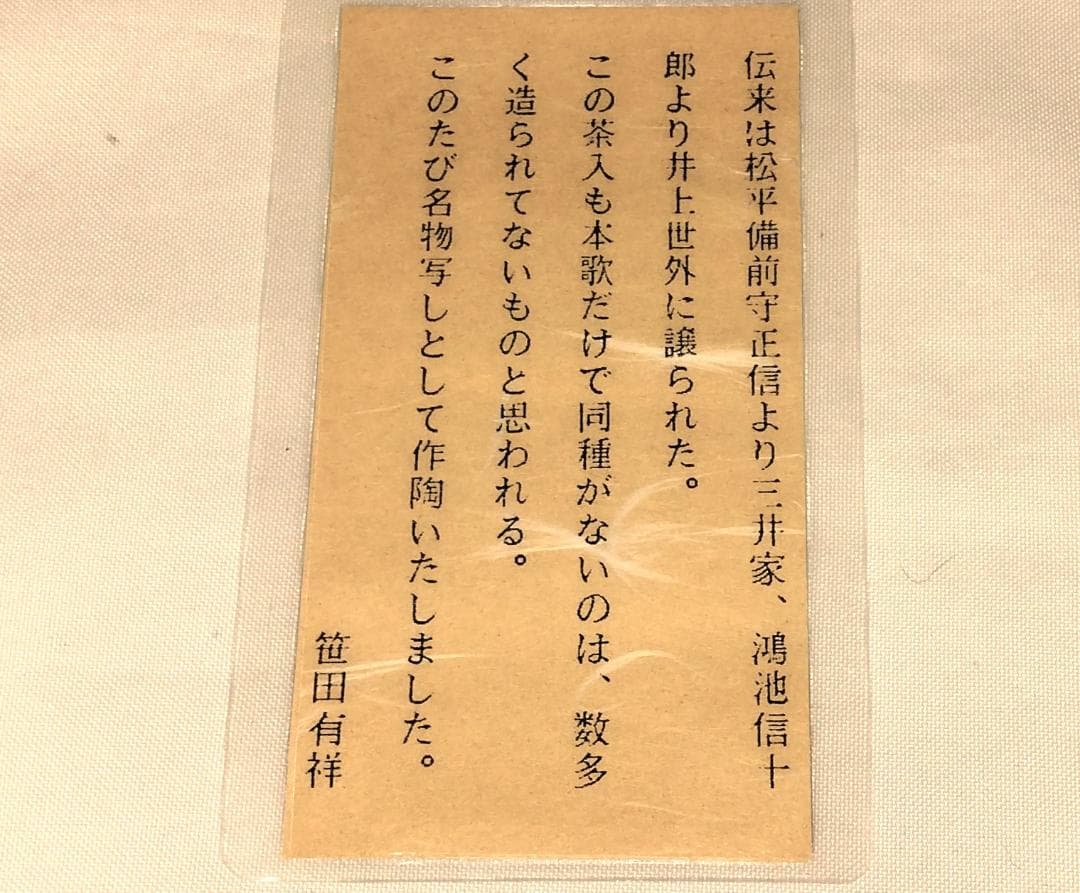 伝来は松平備前守正信より三井家、鴻池信十
郎より井上世外に譲られた。
この茶入も本歌だけで同種がないのは、数多
く造られてないものと思われる。
このたび名物写しとして作陶いたしました。
笹田有祥